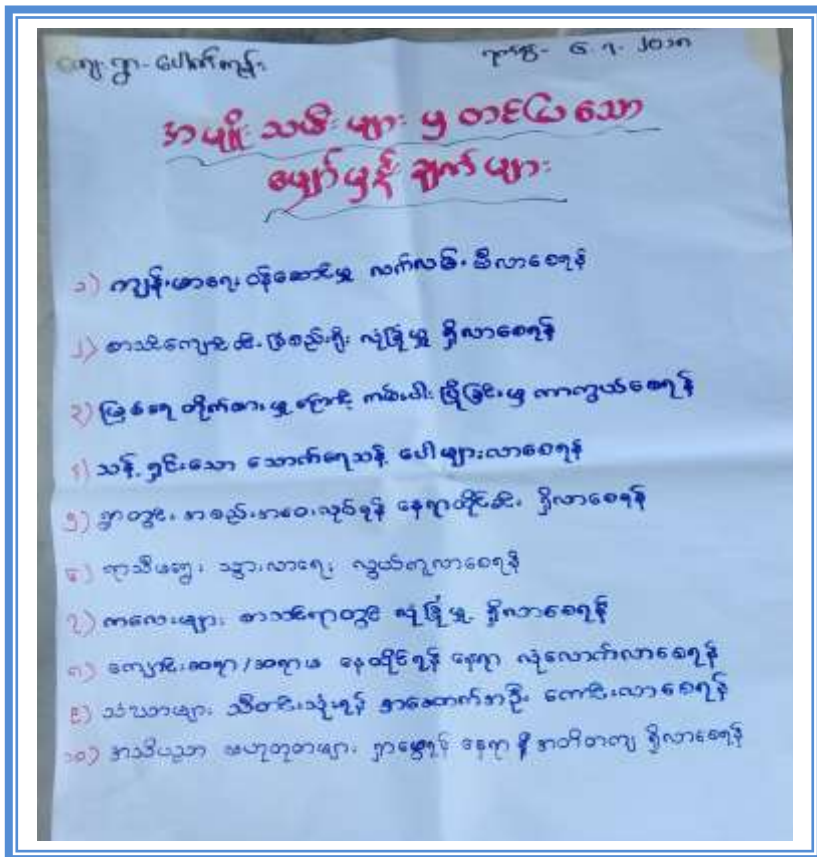 ကျေးရွာ - ပေါက်ကုန်း ရက်စွဲ - ၆.၇.၂၀၁၈
အမျိုးသမီးများမှ တင်ပြသော
မျှော်မှန်းချက်များ
၁) ကျန်းမာရေး ဝန်ဆောင်မှု လက်လှမ်းမီလာစေရန်
၂) စာသင်ကျောင်း ခြံစည်းရိုး လုံခြုံမှု ရှိလာစေရန်
၃) မြစ်ရေ တိုက်စားမှုကြောင့် ကမ်းပါးပြိုခြင်းမှ ကာကွယ်စေရန်
၄) သန့်ရှင်းသော သောက်ရေသန့် ပေါများလာစေရန်
၅) ရွာတွင်း အစည်းအဝေးလုပ်ရန် နေရာထိုင်ခင်း ရှိလာစေရန်
၆) ရာသီမရွေး သွားလာရေး လွယ်ကူလာစေရန်
၇) ကလေးများ စာသင်ရာတွင် လုံခြုံမှု ရှိလာစေရန်
၈) ကျောင်းဆရာ/ဆရာမ နေထိုင်ရန် နေရာ လုံလောက်လာစေရန်
၉) သံဃာများ သီတင်းသုံးရန် အဆောက်အဦး ကောင်းလာစေရန်
၁၀) အသိပညာ ဗဟုသုတများ ရှာမွေးရန် နေရာ နှီ အတိအကျ ရှိလာစေရန်